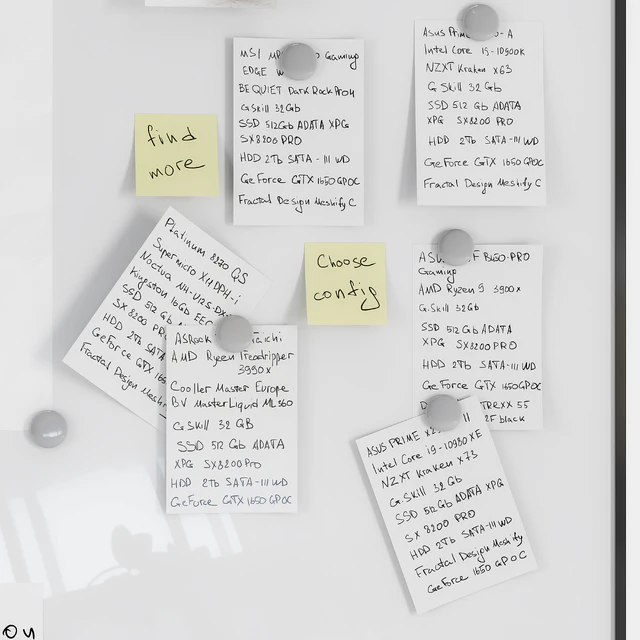 MSI Gaming
EDGE
BE QUIET Dark Rock Pro4
G.Skill 32Gb
SSD 512Gb ADATA XPG
SX8200 PRO
HDD 2Tb SATA-III WD
GeForce GTX 1650 GP OC
Fractal Design Meshify C
Asus Prime -A
Intel Core i9-10900K
NZXT Kraken X63
G.Skill 32Gb
SSD 512 Gb ADATA
XPG SX8200 PRO
HDD 2Tb SATA-III WD
GeForce GTX 1650 GPOC
Fractal Design Meshify C
find
more
Platinum 8270 QS
Supermicro
Noctua
Kingston 16Gb
SSD 512 Gb
SX 8200
HDD 2Tb SATA
GeForce GTX
Fractal Design
Choose
config
ASUS B450-PRO
Gaming
AMD Ryzen 9 3900x
G.Skill 32Gb
SSD 512 Gb ADATA
XPG SX8200 PRO
HDD 2Tb SATA-III WD
GeForce GTX 1650GPOC
55
black
ASRock Taichi
AMD Ryzen Treadripper
3990x
Cooller Master Europe
BV MasterLiquid ML360
G.Skill 32 GB
SSD 512 Gb ADATA
XPG SX8200Pro
HDD 2Tb SATA-III WD
GeForce GTX 1650 GPOC
ASUS PRIME
Intel Core i9-10980XE
NZXT Kraken X73
G.Skill 32Gb
SSD 512Gb ADATA XPG
SX 8200 PRO
HDD 2Tb SATA-III WD
Fractal Design Meshify
GeForce 1650 GP OC